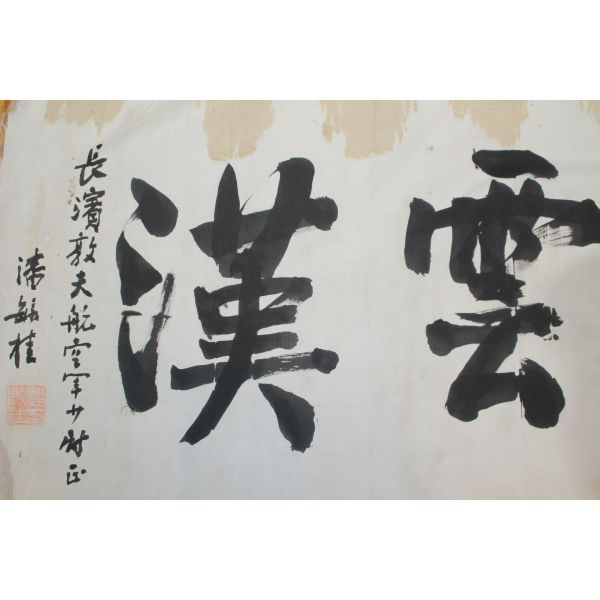 雲漢
長濱敦夫航空軍少尉正
潘毓桂